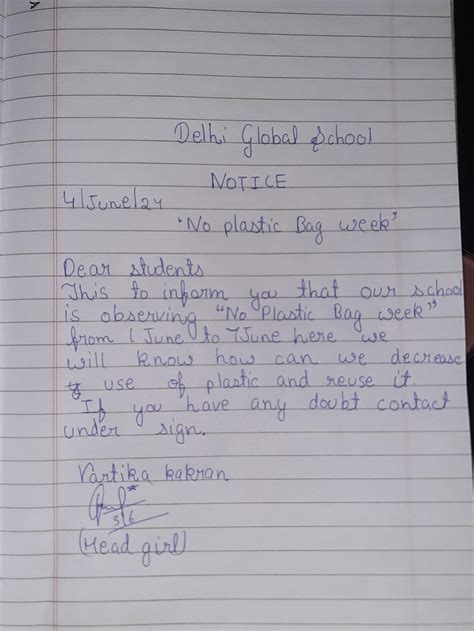 Delhi Global School
NOTICE
4/June/24
"No plastic Bag week"
Dear students
This to inform you that our school
is observing "No Plastic Bag week"
from 1 June to 7June here we
will know how can we decrease
use of plastic and reuse it.
If you have any doubt contact
under sign.
Vartika Kakran
3/6
(Head girl)